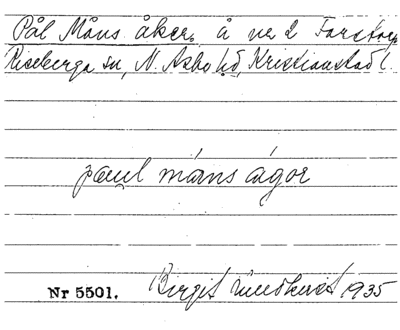 Pål Måns åker, å nr 2 Forstorp
Riseberga sn, N. Åsbo hd, Kristianstad l
paul måns ágor
Nr 5501. Birgit Lindkvist 1935